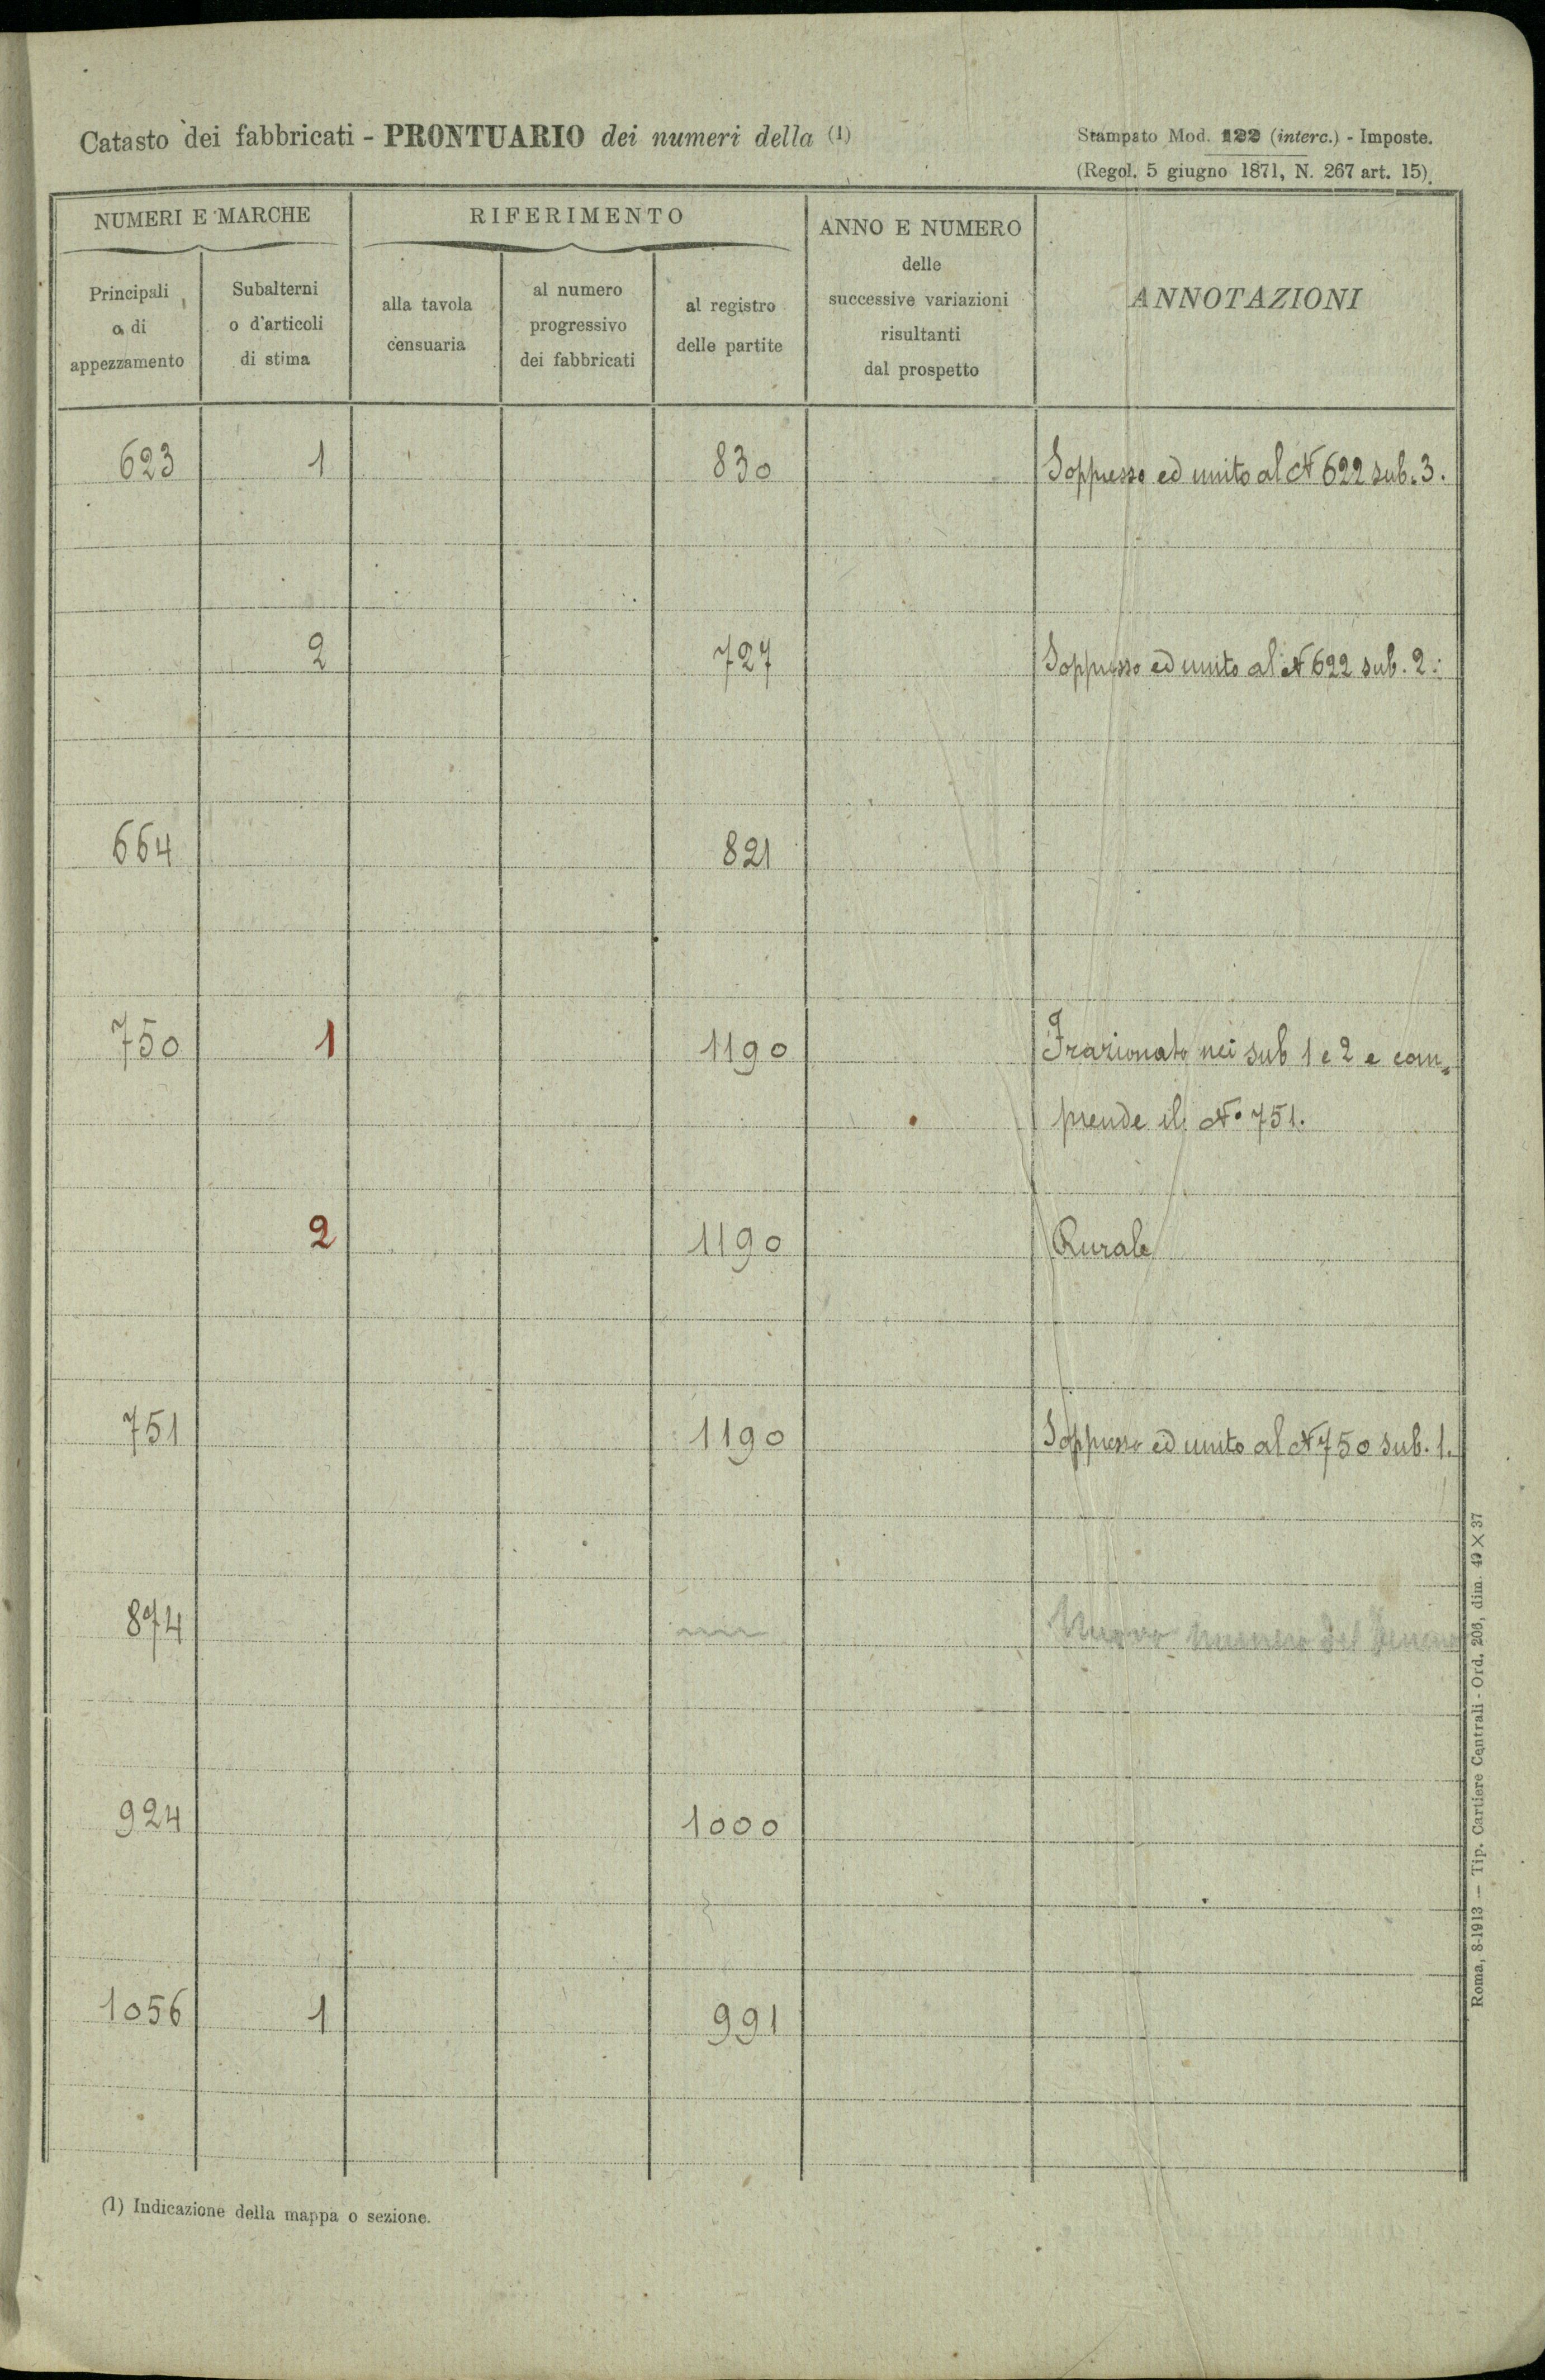 Catasto dei fabbricati - PRONTUARIO dei numeri della (1)
Stampato Mod. 122 (interc.) - Imposte.
(Regol. 5 giugno 1871, N. 267 art. 15).
NUMERI E MARCHE
RIFERIMENTO
ANNO E NUMERO
delle
successive variazioni
risultanti
dal prospetto
ANNOTAZIONI
Principali
o di
appezzamento
Subalterni
o d'articoli
di stima
alla tavola
censuaria
al numero
progressivo
dei fabbricati
al registro
delle partite
623 1 830 Soppresso ed unito al N 622 sub. 3.
2 727 Soppresso ed unito al N 622 sub. 2.
664 821
750 1 1190 Frazionato nei sub 1 e 2 e com=
prende il N° 751.
2 1190 Rurale
751 1190 Soppresso ed unito al N 750 sub. 1.
874 Nuovo numero del
924 1000
1056 1 991
(1) Indicazione della mappa o sezione.
Roma, 8-1913 — Tip. Cartiere Centrali - Ord. 206, dim. 49 × 37